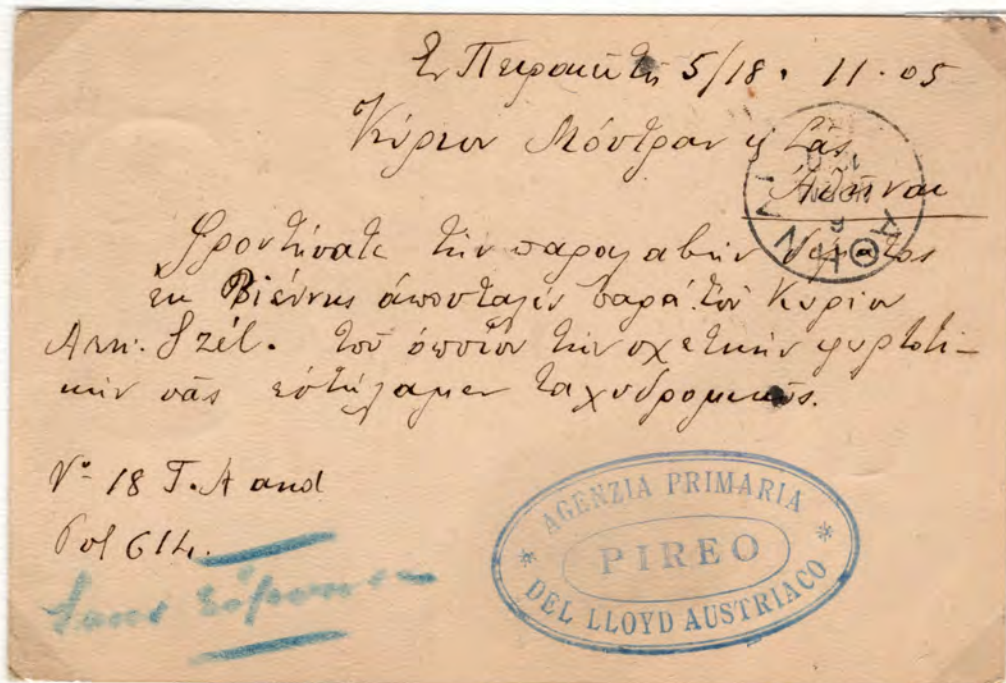 Ἐν Πειραιεῖ τῇ 5/18. 11. 05
Κύριον Μόντραν & Cας
Ἀθήνας
ΑΘΗΝΑΙ
Φροντίσατε τὴν παραλαβὴν δέματος
ἐκ Βιέννης ἀποσταλὲν παρὰ τοῦ Κυρίου
Arn. Szél. τοῦ ὁποίου τὴν σχετικὴν φορτωτι-
κὴν σᾶς ἐστείλαμεν ταχυδρομικῶς.
Nº 18 T.A and
Pol 614.
AGENZIA PRIMARIA
PIREO
DEL LLOYD AUSTRIACO